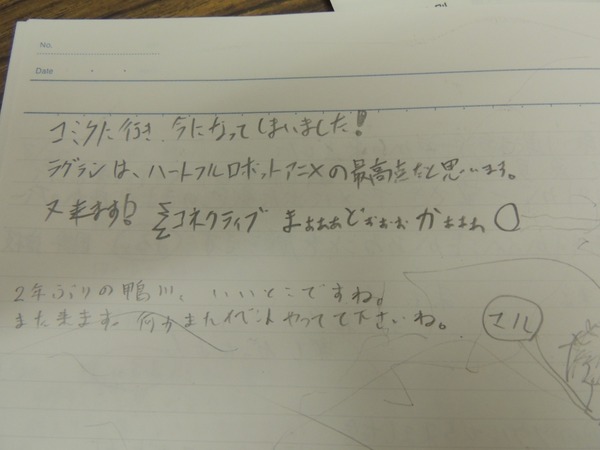 No.
Date
コミケに行き 今になってしまいました!
ラグランは、ハートフルロボットアニメの最高点だと思います。
又来ます! コネクティブ まぁぁぁどぉぉぉかぁぁぁ○
2年ぶりの鴨川、いいとこですね。
また来ます。何かまたイベントやってて下さいね。
マル